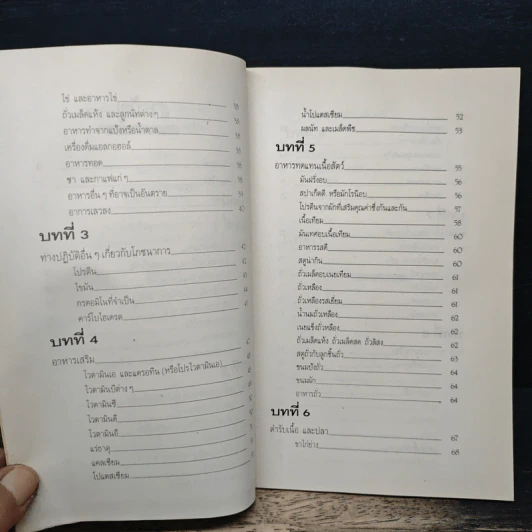 ไข่ และอาหารไข่
ถั่วเมล็ดแห้ง และลูกนัทต่างๆ
อาหารทำจากแป้งหรือน้ำตาล
เครื่องดื่มแอลกอฮอล์
อาหารทอด
ชา และกาแฟแก่ ๆ
อาหารอื่น ๆ ที่อาจเป็นอันตราย
อาการเลวลง
บทที่ 3
ทางปฏิบัติอื่น ๆ เกี่ยวกับโภชนาการ
โปรตีน
ไขมัน
กรดอมิโนที่จำเป็น
คาร์โบไฮเดรต
บทที่ 4
อาหารเสริม
ไวตามินเอ และแครอทีน (หรือโปรไวตามินเอ)
ไวตามินบีต่าง ๆ
ไวตามินซี
ไวตามินดี
ไวตามินอี
แร่ธาตุ
แคลเซียม
โปแตสเซียม
น้ำโปแตสเซียม 52
ผลนัท และเมล็ดพืช 53
บทที่ 5
อาหารทดแทนเนื้อสัตว์ 55
มันฝรั่งอบ 56
สปาเก็ตตี หรือมักโรนีอบ 56
โปรตีนจากผักที่เสริมคุณค่าซึ่งกันและกัน 57
เนื้อเทียม 58
มันเทศอบเนื้อเทียม 60
อาหารรสดี 60
สตูน่ากิน 60
ถั่วเมล็ดอบเนยเทียม 61
ถั่วเหลือง 61
ถั่วเหลืองรสเยี่ยม 61
น้ำนมถั่วเหลือง 62
เนยแข็งถั่วเหลือง 62
ถั่วเมล็ดแห้ง ถั่วเมล็ดสด ถั่วลิสง 62
สตูถั่วกับลูกชิ้นถั่ว 63
ขนมปังถั่ว 64
ขนมผัก 64
อาหารถั่ว 64
บทที่ 6
ตำรับเนื้อ และปลา 67
ขาไก่ย่าง 68